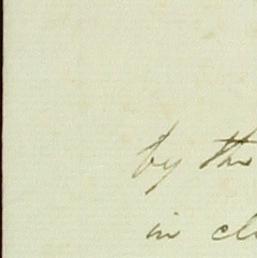 by the
in cl